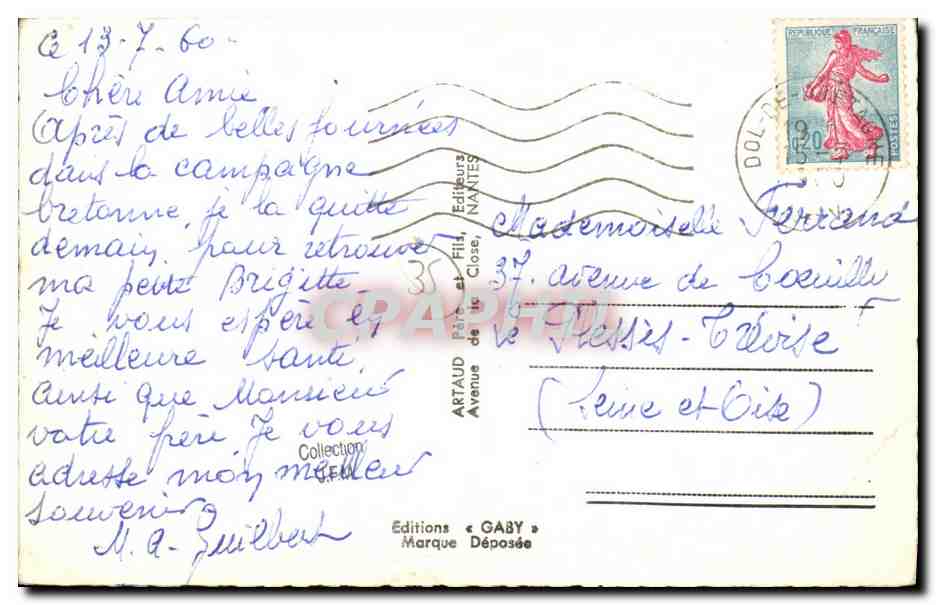 Ce 13-7-60-
Chère Amie
Après de belles journées
dans la campagne
bretonne, je la quitte
demain, pour retrouver
ma petite Brigitte
Je vous espère en
meilleure santé,
ainsi que Monsieur
votre frère Je vous
adresse mon meilleur
souvenir
M. A- Guilbert
35
Collection
Editions « GABY »
Marque Déposée
ARTAUD Père et Fils, Editeurs
Avenue de la Close, NANTES
CPARAMA
REPUBLIQUE FRANÇAISE
0,20
POSTES
DOL-DE-BRETAGNE
Mademoiselle Ferrand
37. avenue de Coeuilly
Le Plessis-Trévise
(Seine et-Oise)